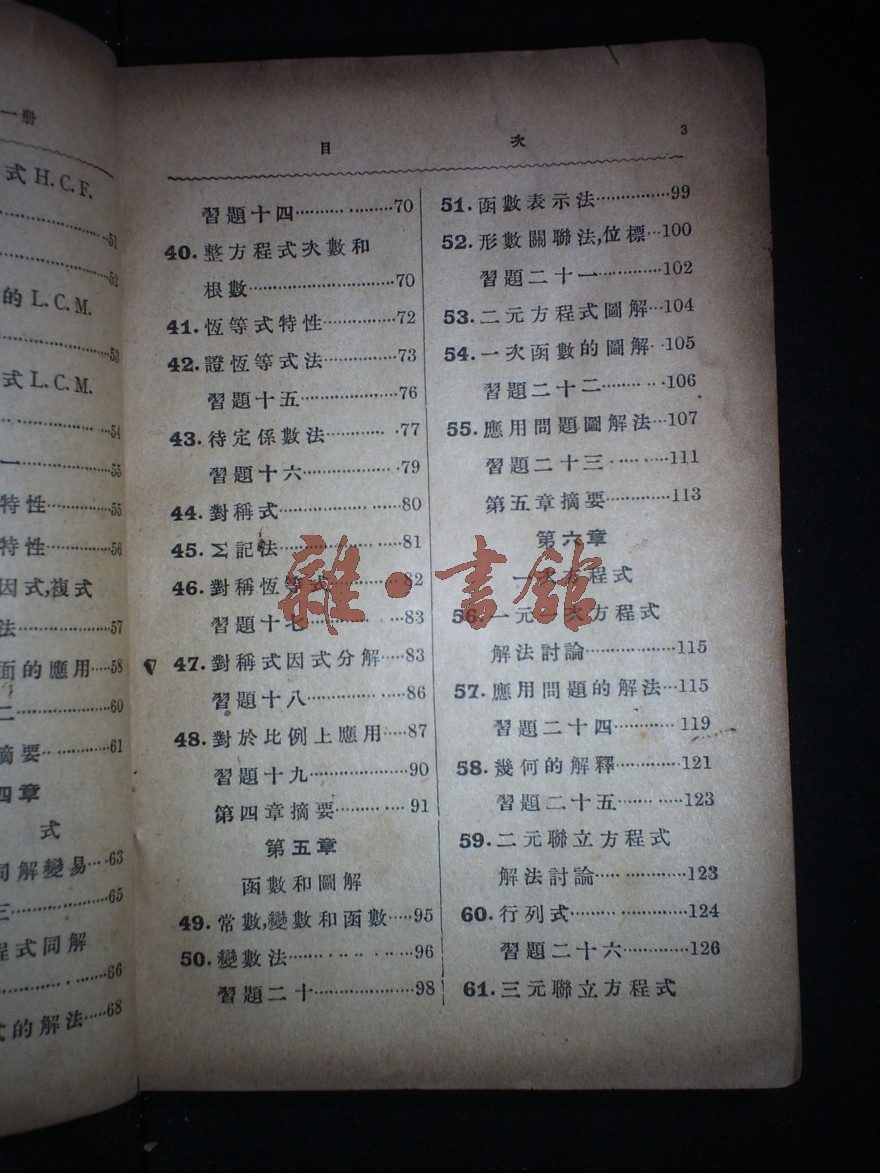 一册
式 H.C.F.
51
52
的 L.C.M.
53
式 L.C.M.
54
一
55
特性……………55
特性……………56
因式,複式
法……………57
面的應用……58
二……………60
摘要……………61
四章
式
同解變易……63
三……………65
程式同解
66
式的解法……68
目 次 3
習題十四………………70
40.整方程式次數和
根數………………70
41.恆等式特性……………72
42.證恆等式法……………73
習題十五………………76
43.待定係數法……………77
習題十六………………79
44.對稱式………………80
45.Σ記法………………81
46.對稱恆等式……………82
習題十七………………83
47.對稱式因式分解……83
習題十八………………86
48.對於比例上應用……87
習題十九………………90
第四章摘要……………91
第五章
函數和圖解
49.常數,變數和函數……95
50.變數法………………96
習題二十………………98
51.函數表示法……………99
52.形數關聯法,位標…100
習題二十一……………102
53.二元方程式圖解…104
54.一次函數的圖解…105
習題二十二……………106
55.應用問題圖解法…107
習題二十三……………111
第五章摘要……………113
第六章
一次方程式
56.一元一次方程式
解法討論………………115
57.應用問題的解法…115
習題二十四……………119
58.幾何的解釋……………121
習題二十五……………123
59.二元聯立方程式
解法討論………………123
60.行列式………………124
習題二十六……………126
61.三元聯立方程式
雜·書館